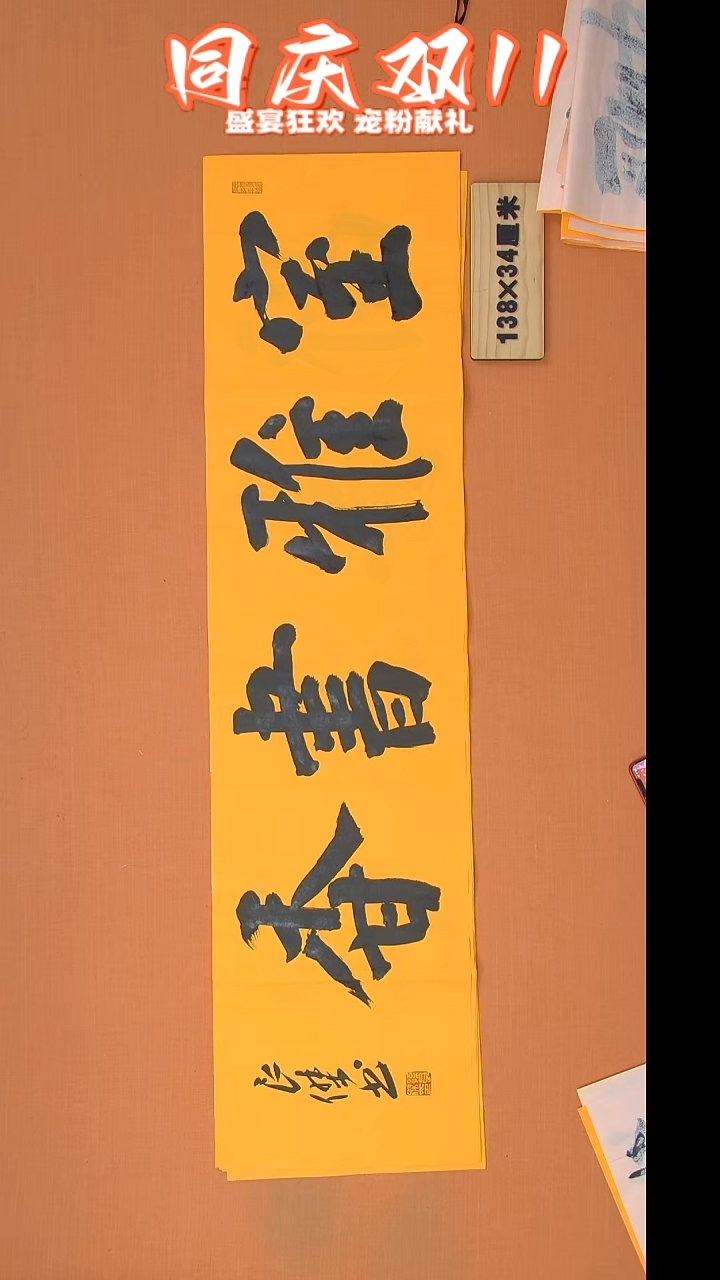 同庆双11
盛宴狂欢 宠粉献礼
138×34厘米
室雅書香